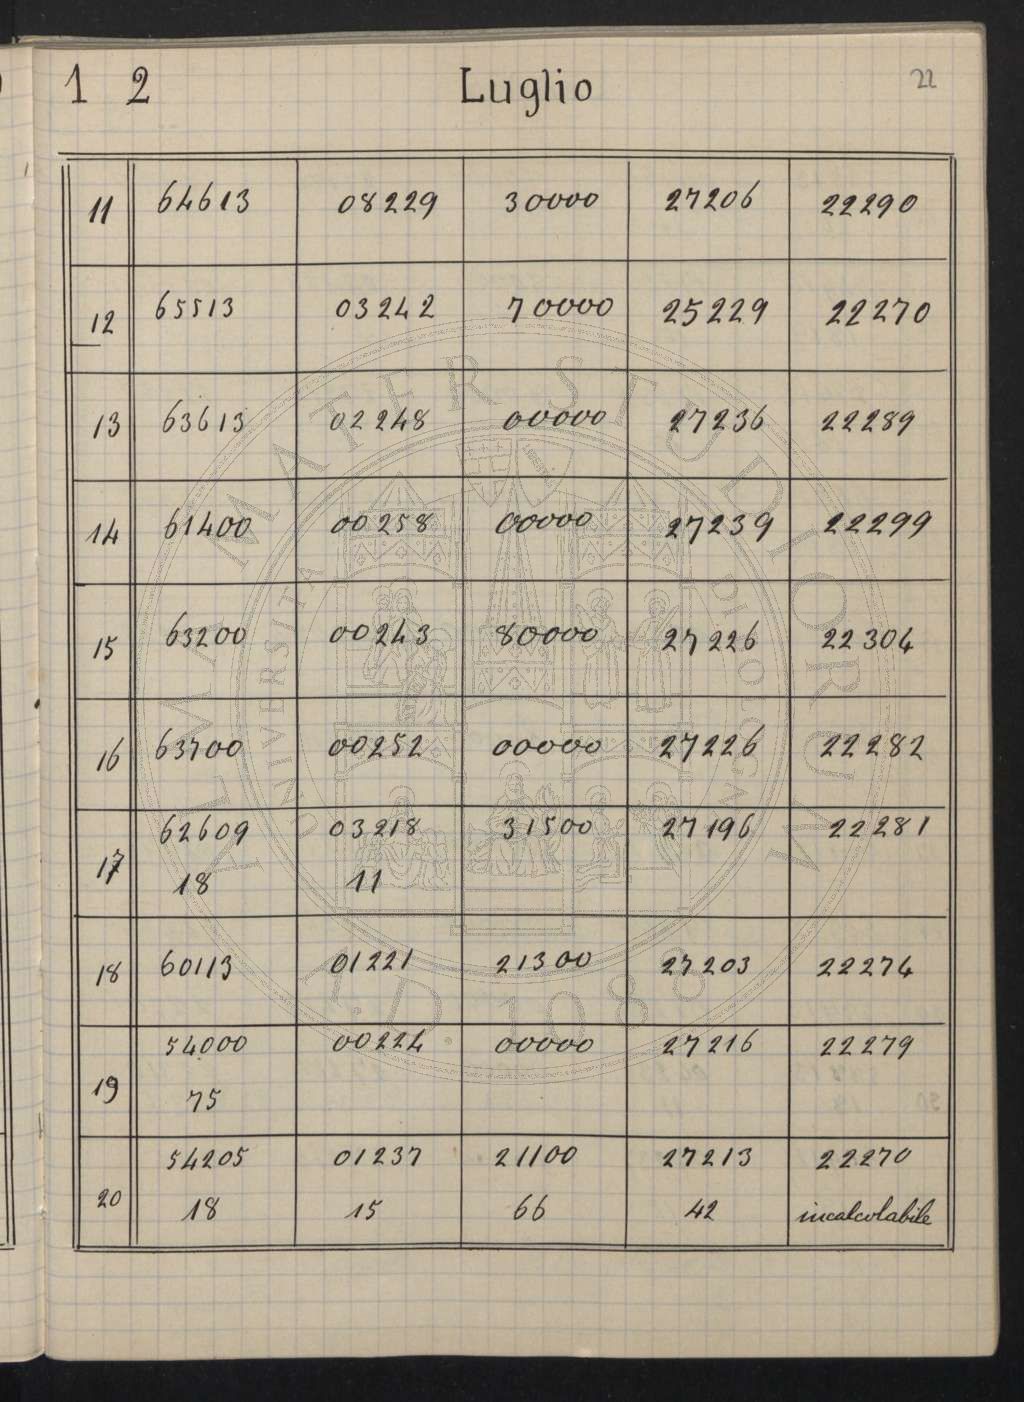 1 2 Luglio 22
11 64613 08229 30000 27206 22290
12 65513 03242 70000 25229 22270
13 63613 02248 00000 27236 22289
14 61400 00258 00000 27239 22299
15 63200 00243 80000 27226 22304
16 63700 00252 00000 27226 22282
17 62609 03218 31500 27196 22281
18 11
18 60113 01221 21300 27203 22274
19 54000 00224 00000 27216 22279
75
20 54205 01237 21100 27213 22270
18 15 66 42 incalcolabile
ALMA MATER STUDIORUM
A.D. 1088